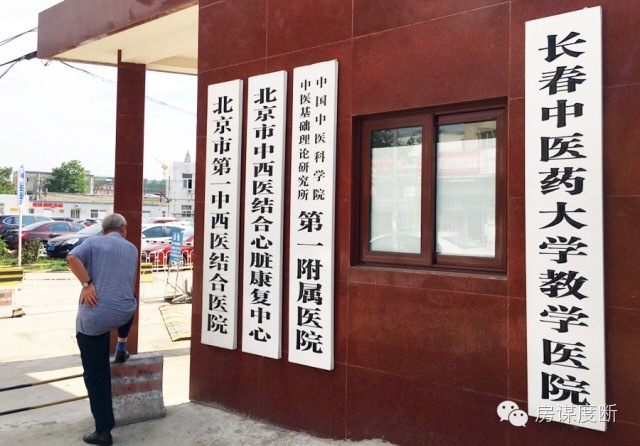 北京市第一中西医结合医院
北京市中西医结合心脏康复中心
中国中医科学院
中医基础理论研究所
第一附属医院
长春中医药大学教学医院
房谋度断